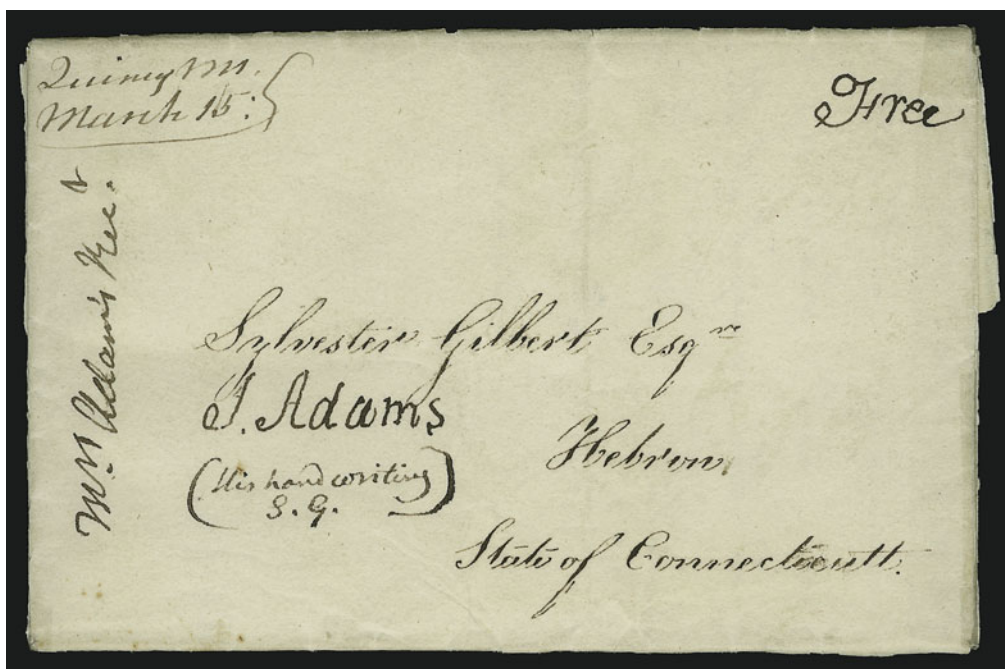 Quincy Ms.
March 15.
Free
Mr. Adams's Rect.
Sylvester Gilbert Esqre
J. Adams
(His hand writing
S. G.)
Hebron
State of Connecticutt.